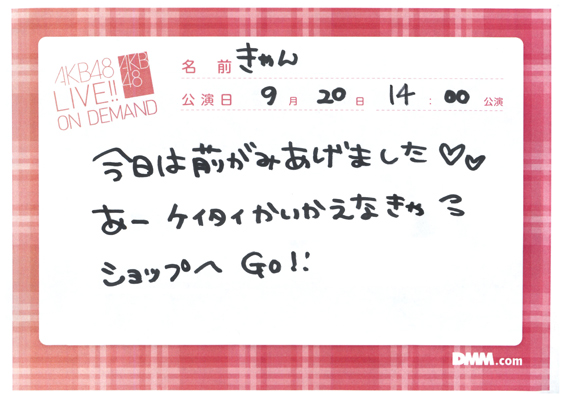 AKB48
LIVE!!
ON DEMAND
AKB
48
名 前 きゃん
公演日 9月 20日 14:00 公演
今日は前がみあげました♡♡
あー ケイタイかいかえなきゃ
ショップへ GO!!
DMM.com